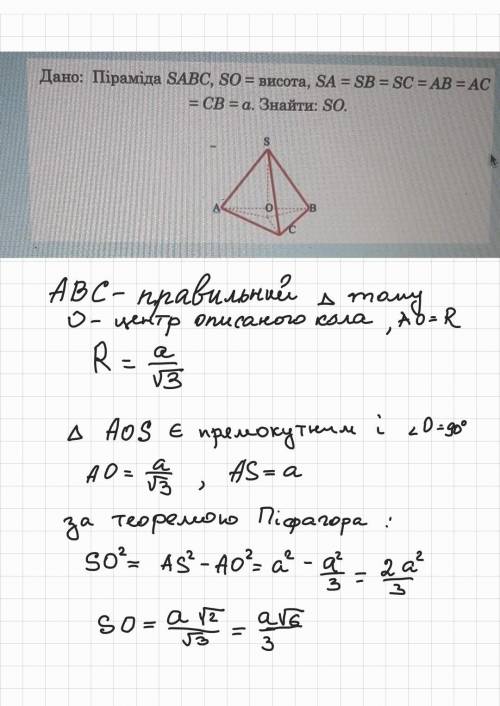 Дано: Піраміда SABC, SO = висота, SA = SB = SC = AB = AC
= CB = a. Знайти: SO.
S
A
O
B
C
ABC - правильний Δ тому
O - центр описаного кола, AO = R
R = a/√3
Δ AOS є премокутним і ∠O = 90°
AO = a/√3, AS = a
за теоремою Піфагора:
SO² = AS² - AO² = a² - a²/3 = 2a²/3
SO = a√2/√3 = a√6/3